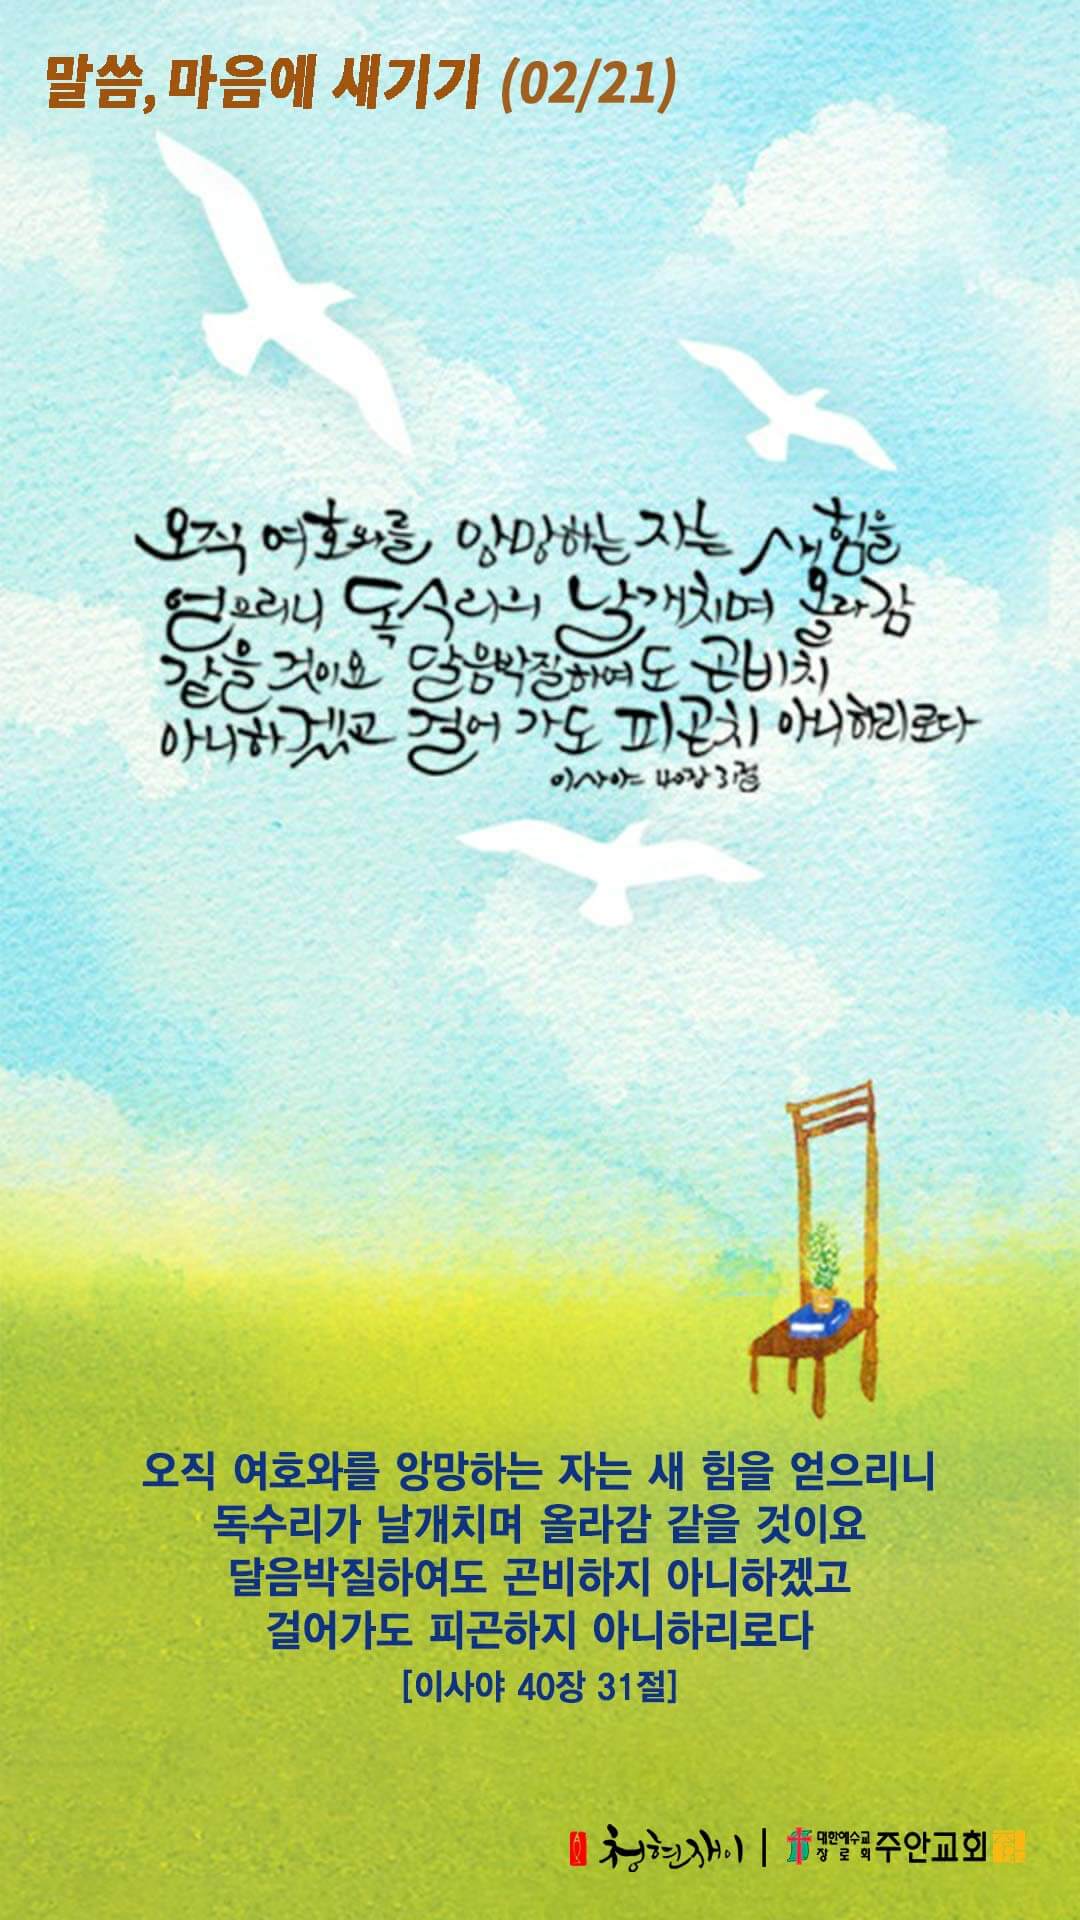 말씀, 마음에 새기기 (02/21)
오직 여호와를 앙망하는 자는 새 힘을
얻으리니 독수리의 날개치며 올라감
같을 것이요 달음박질하여도 곤비치
아니하겠고 걸어 가도 피곤치 아니하리로다
이사야 40장 31절
오직 여호와를 앙망하는 자는 새 힘을 얻으리니
독수리가 날개치며 올라감 같을 것이요
달음박질하여도 곤비하지 아니하겠고
걸어가도 피곤하지 아니하리로다
[이사야 40장 31절]
청현재이 | 대한예수교
장로회 주안교회